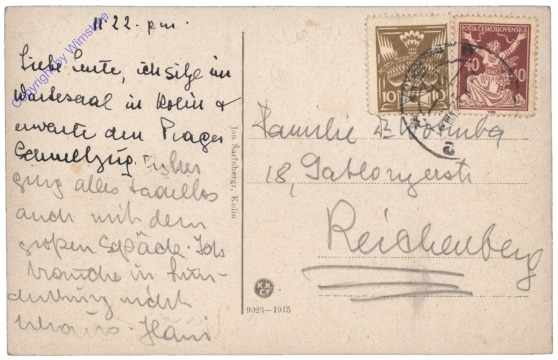 11.22. pm.
Liebe Leute, ich sitze im
Wartesaal in Kolin &
erwarte den Prager
Schnellzug. Bisher
ging alles tadellos
auch mit dem
großen Gepäck. Ich
brauche in
nicht
heraus. Hans
Copyright by
Jan Šafnbergr, Kolín
K.K.
9023-1915
10 10
POŠTA ČESKOSLOVENSKÁ
40 40
Familie
18, Gablonzerstr
Reichenberg